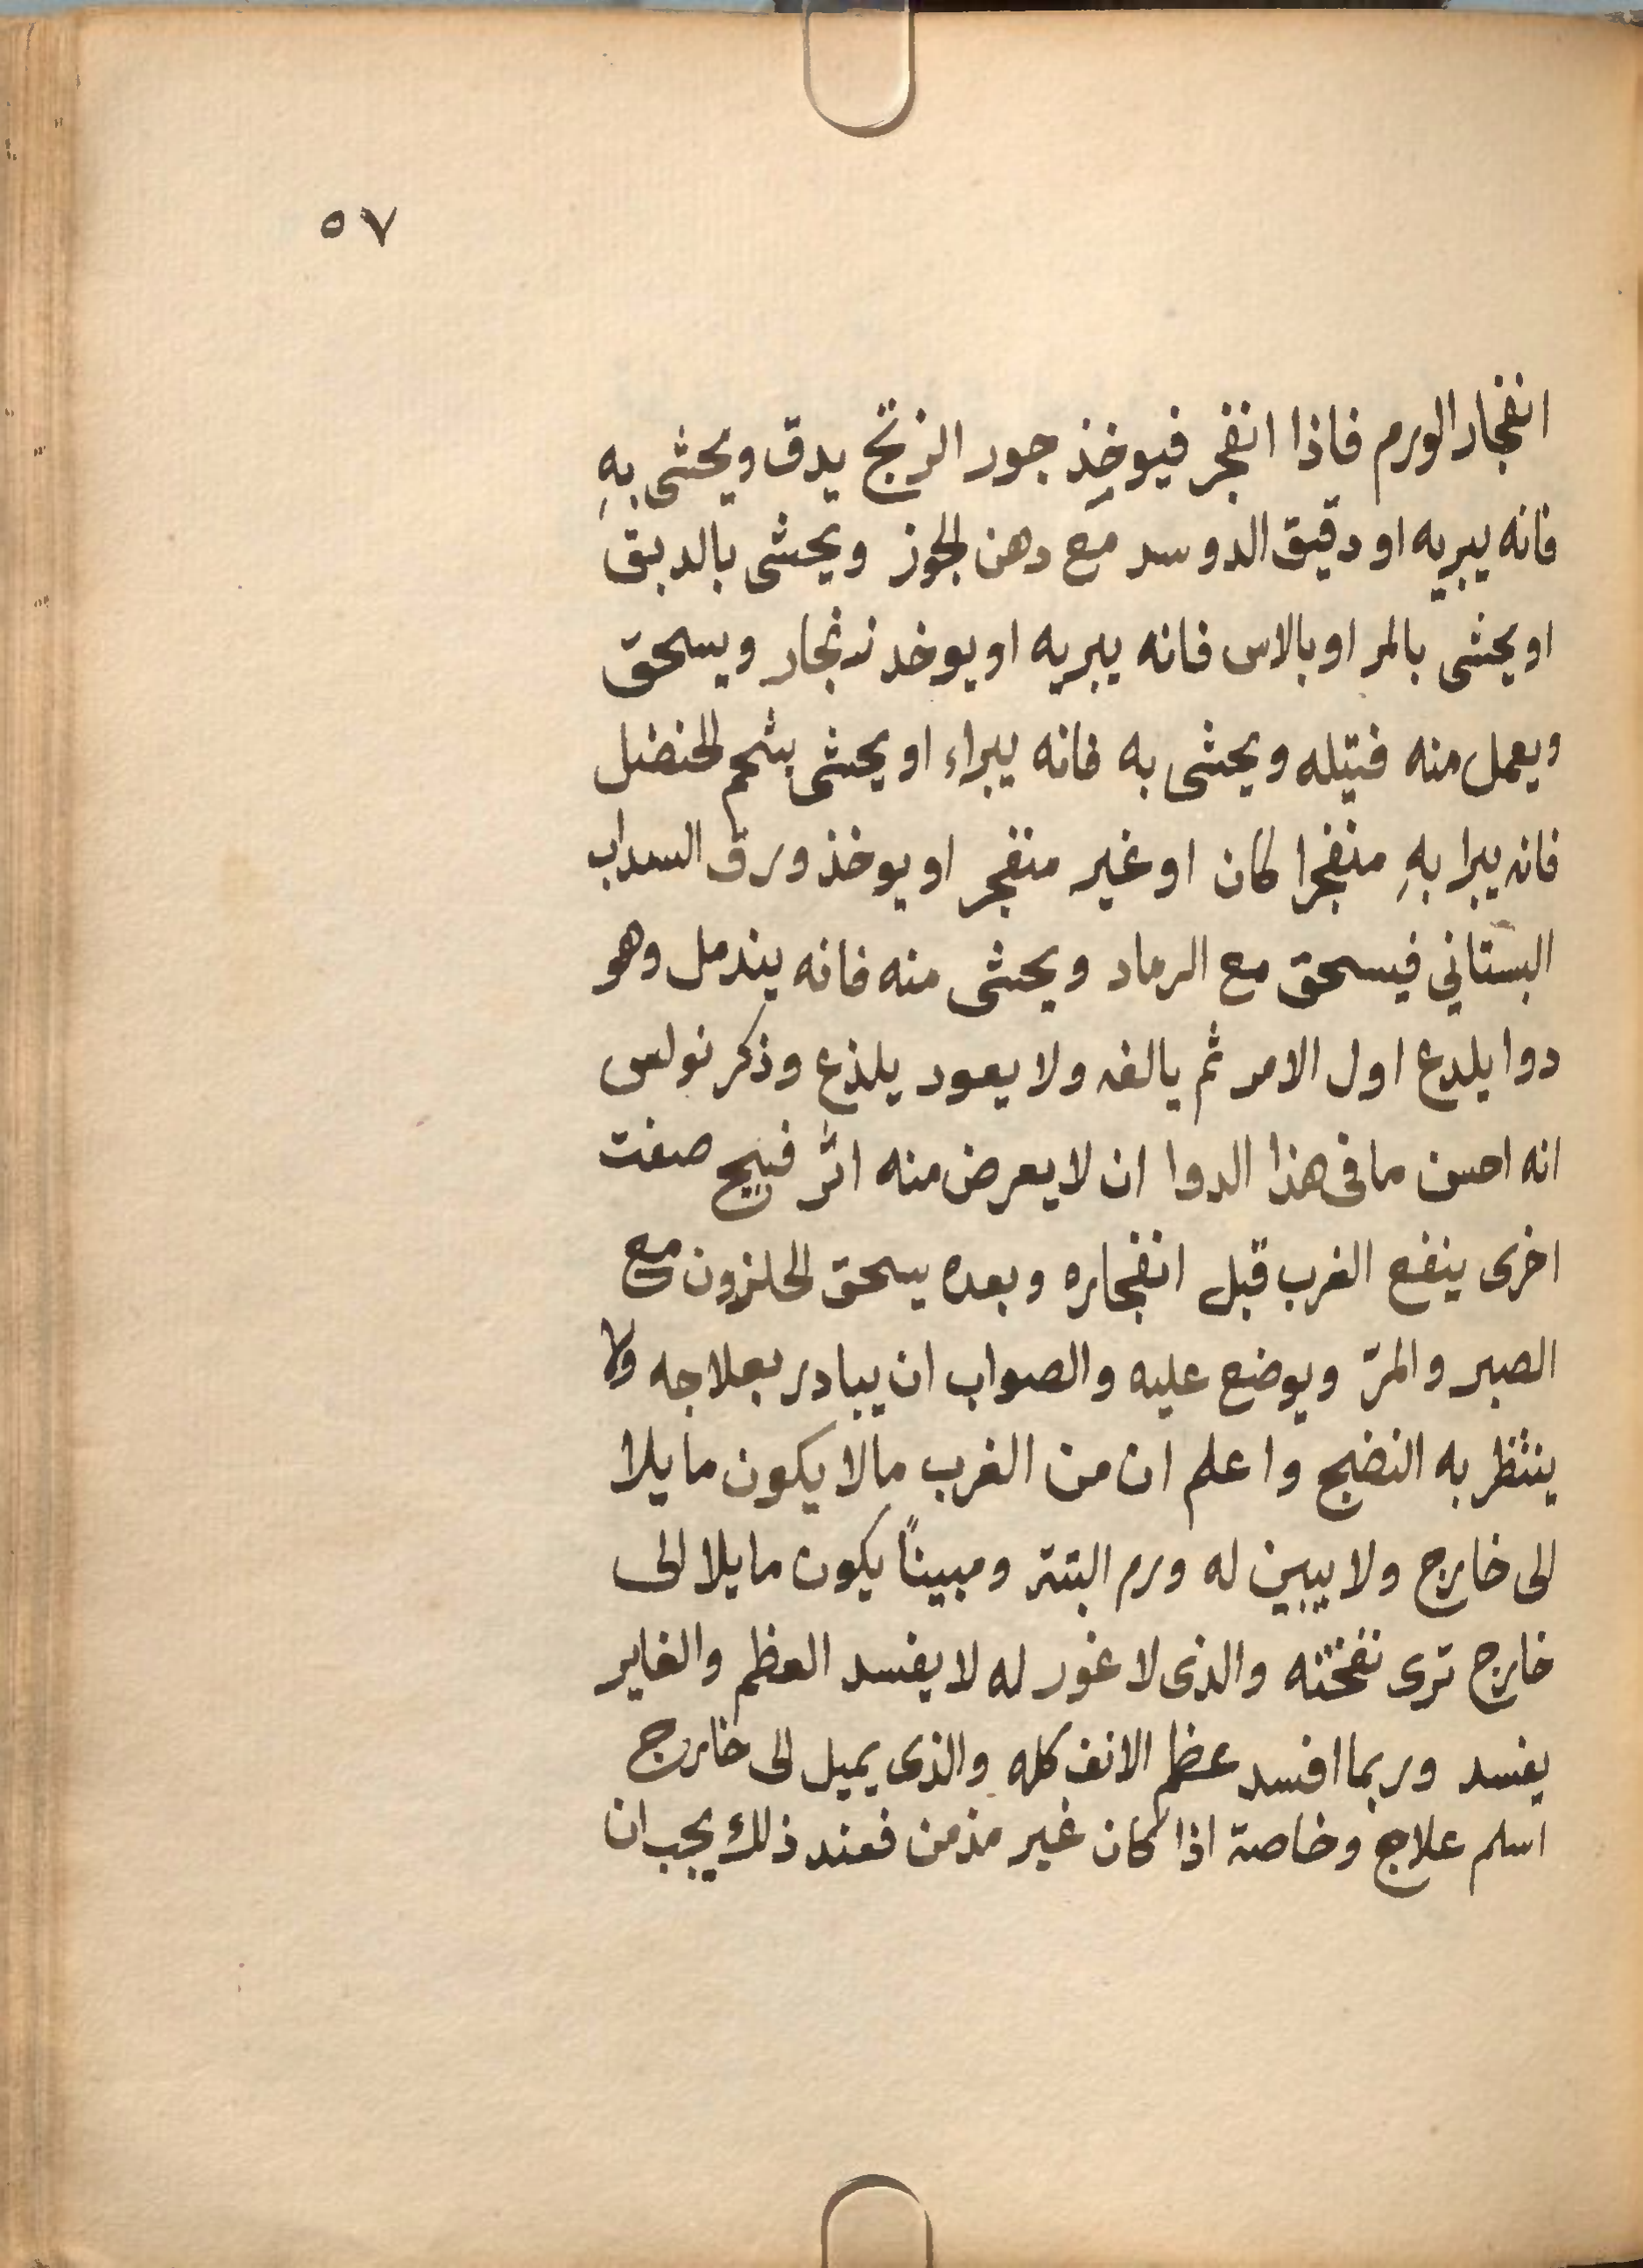 ٥٧
انفجار الورم فاذا انفجر فيوخذ جور الزنج يدق ويحشى بهِ
فانه يبريه او دقيق الدوسر مع دهن الجوز ويحشى بالدبق
او يحشى بالمر او بالاس فانه يبريه او يوخد زنجار ويسحق
ويعمل منه فتيله ويحشى به فانه يبراء او يحشى بشحم الحنضل
فانه يبرا بهِ منفجرا كان او غير منفجر او يوخذ ورق السداب
البستاني فيسحق مع الرماد ويحشى منه فانه يندمل وهو
دوا يلدع اول الامر ثم يالفه ولا يعود يلذع وذكر نولس
انه احسن ما فى هذا الدوا ان لا يعرض منه اثر قبيح صفت
اخرى ينفع الغرب قبل انفجاره وبعده يسحق الحلزون مع
الصبر والمرّ ويوضع عليه والصواب ان يبادر بعلاجه ولا
ينتظر به النضج واعلم ان من الغرب مالا يكون مايلا
الى خارج ولا يبين له ورم البتتر ومبيناً يكون مايلا الى
خارج ترى نفختنه والذى لا غور له لا يفسد العظم والغاير
يفسد وربما افسد عظم الانف كله والذى يميل الى خارج
اسلم علاج وخاصة اذا كان غير مذمن فعند ذلك يجب ان